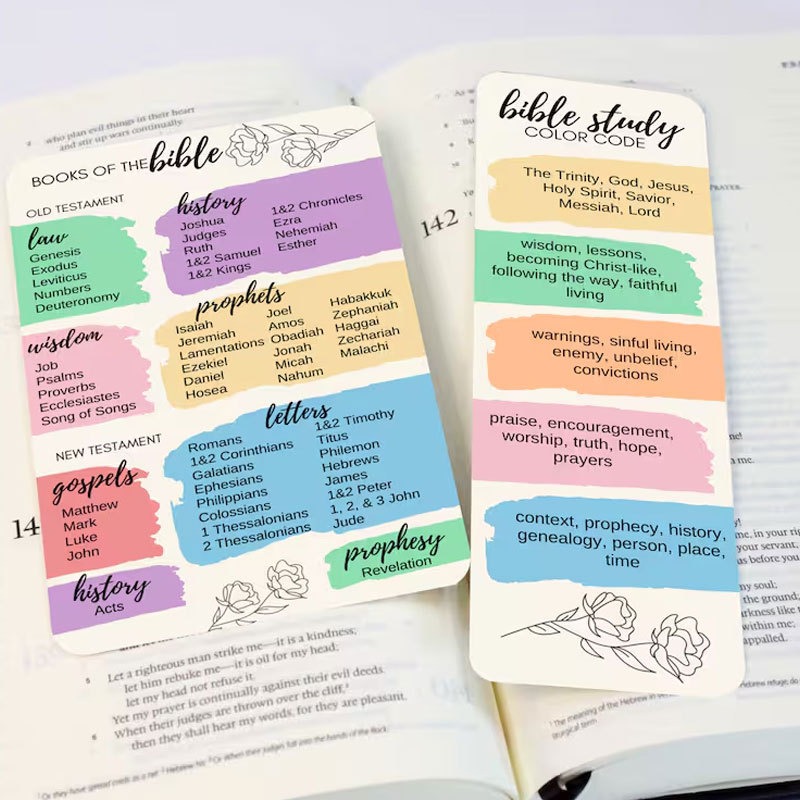 who plan evil things in their heart
and stir up wars continually.
BOOKS OF THE bible
OLD TESTAMENT
law
Genesis
Exodus
Leviticus
Numbers
Deuteronomy
history
Joshua
Judges
Ruth
1&2 Samuel
1&2 Kings
1&2 Chronicles
Ezra
Nehemiah
Esther
wisdom
Job
Psalms
Proverbs
Ecclesiastes
Song of Songs
prophets
Isaiah
Jeremiah
Lamentations
Ezekiel
Daniel
Hosea
Joel
Amos
Obadiah
Jonah
Micah
Nahum
Habakkuk
Zephaniah
Haggai
Zechariah
Malachi
NEW TESTAMENT
gospels
Matthew
Mark
Luke
John
letters
Romans
1&2 Corinthians
Galatians
Ephesians
Philippians
Colossians
1 Thessalonians
2 Thessalonians
1&2 Timothy
Titus
Philemon
Hebrews
James
1&2 Peter
1, 2, & 3 John
Jude
history
Acts
prophesy
Revelation
14
5 Let a righteous man strike me—it is a kindness;
let him rebuke me—it is oil for my head;
let my head not refuse it.
Yet my prayer is continually against their evil deeds.
6 When their judges are thrown over the cliff,
then they shall hear my words, for they are pleasant.
142
bible study
COLOR CODE
The Trinity, God, Jesus,
Holy Spirit, Savior,
Messiah, Lord
wisdom, lessons,
becoming Christ-like,
following the way, faithful
living
warnings, sinful living,
enemy, unbelief,
convictions
praise, encouragement,
worship, truth, hope,
prayers
context, prophecy, history,
genealogy, person, place,
time
my soul;
the ground;
within me;
appalled.
1 The meaning of the Hebrew